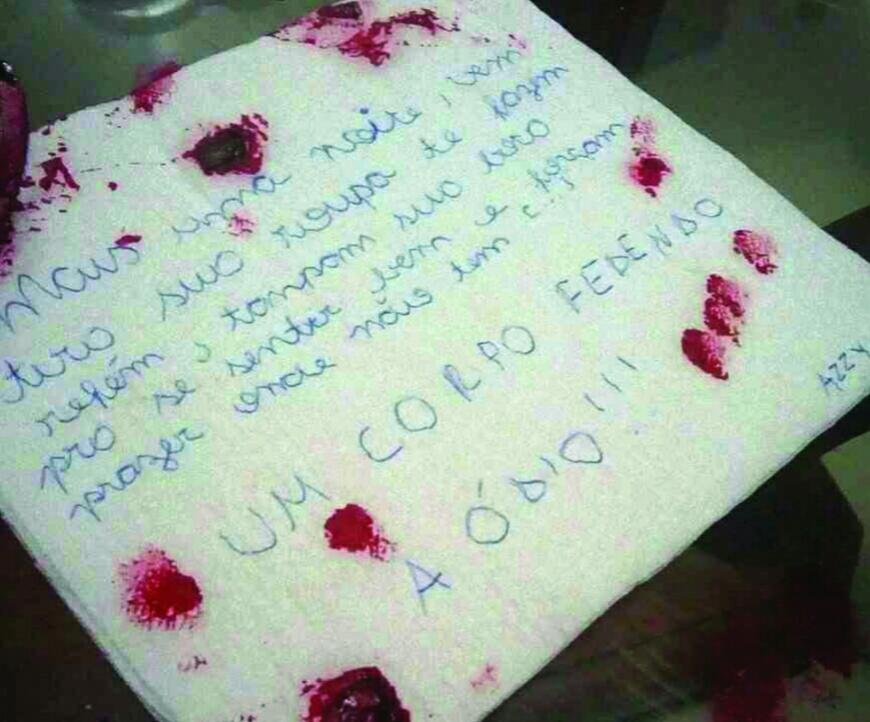 Mais uma noite, vem
tira sua roupa te fazem
refém, tampam sua boca
pra se sentir bem e forçam
prazer onde não tem ...
UM CORPO FEDENDO
A ÓDIO!!!
AZZY